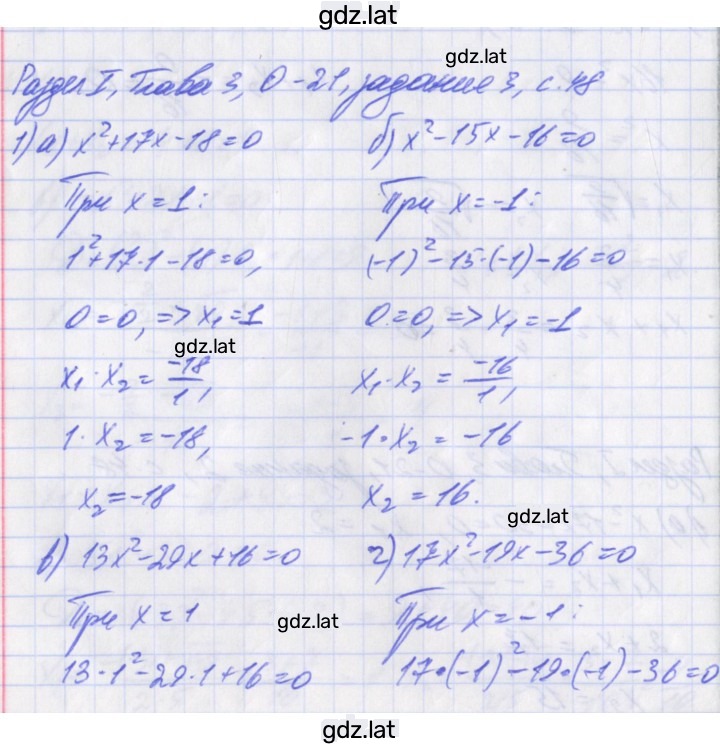 gdz.lat
gdz.lat
Раздел I, Глава 3, О-21, задание 3, с. 48
1) а) x²+17x-18=0
При x=1:
1²+17·1-18=0,
0=0, => x₁=1
gdz.lat
x₁·x₂=-18/1,
1·x₂=-18,
x₂=-18
б) x²-15x-16=0
При x=-1:
(-1)²-15·(-1)-16=0
0=0, => x₁=-1
x₁·x₂=-16/1,
-1·x₂=-16
x₂=16.
gdz.lat
в) 13x²-29x+16=0
При x=1
gdz.lat
13·1²-29·1+16=0
г) 17x²-19x-36=0
При x=-1:
17·(-1)²-19·(-1)-36=0
gdz.lat